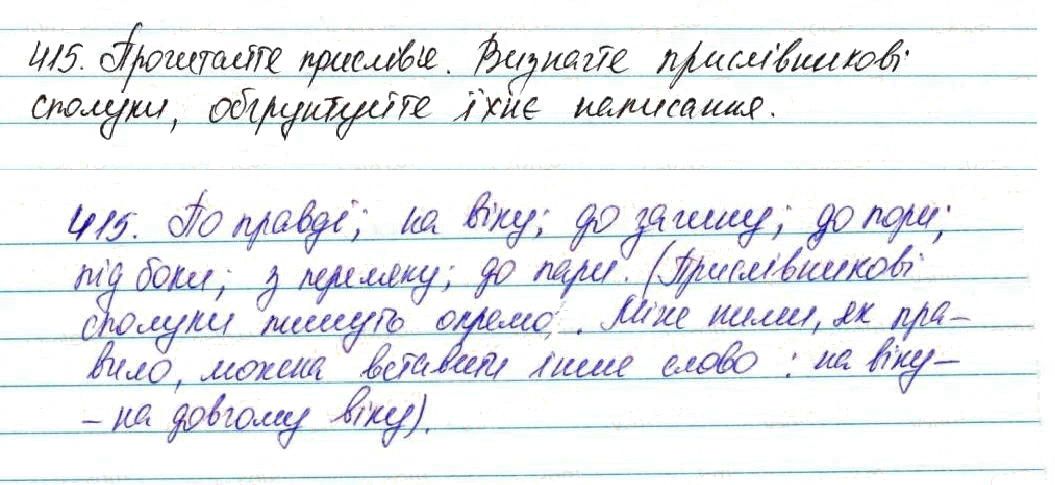 415. Прочитайте прислів'я. Визначте прислівникові
сполуки, обґрунтуйте їхнє написання.
415. По правді; на віку; до загину; до пори;
під боки; з переляку; до пари. (Прислівникові
сполуки пишуть окремо. Між ними, як пра-
вило, можна вставити інше слово: на віку-
- на довгому віку).